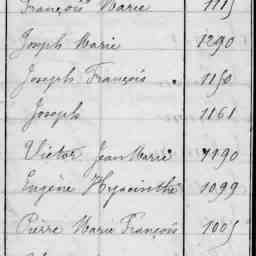 François Marie 1115
Joseph Marie 1290
Joseph François 1150
Joseph 1161
Victor Jean Marie 1190
Eugène Hyacinthe 1099
Pierre Marie François 1005